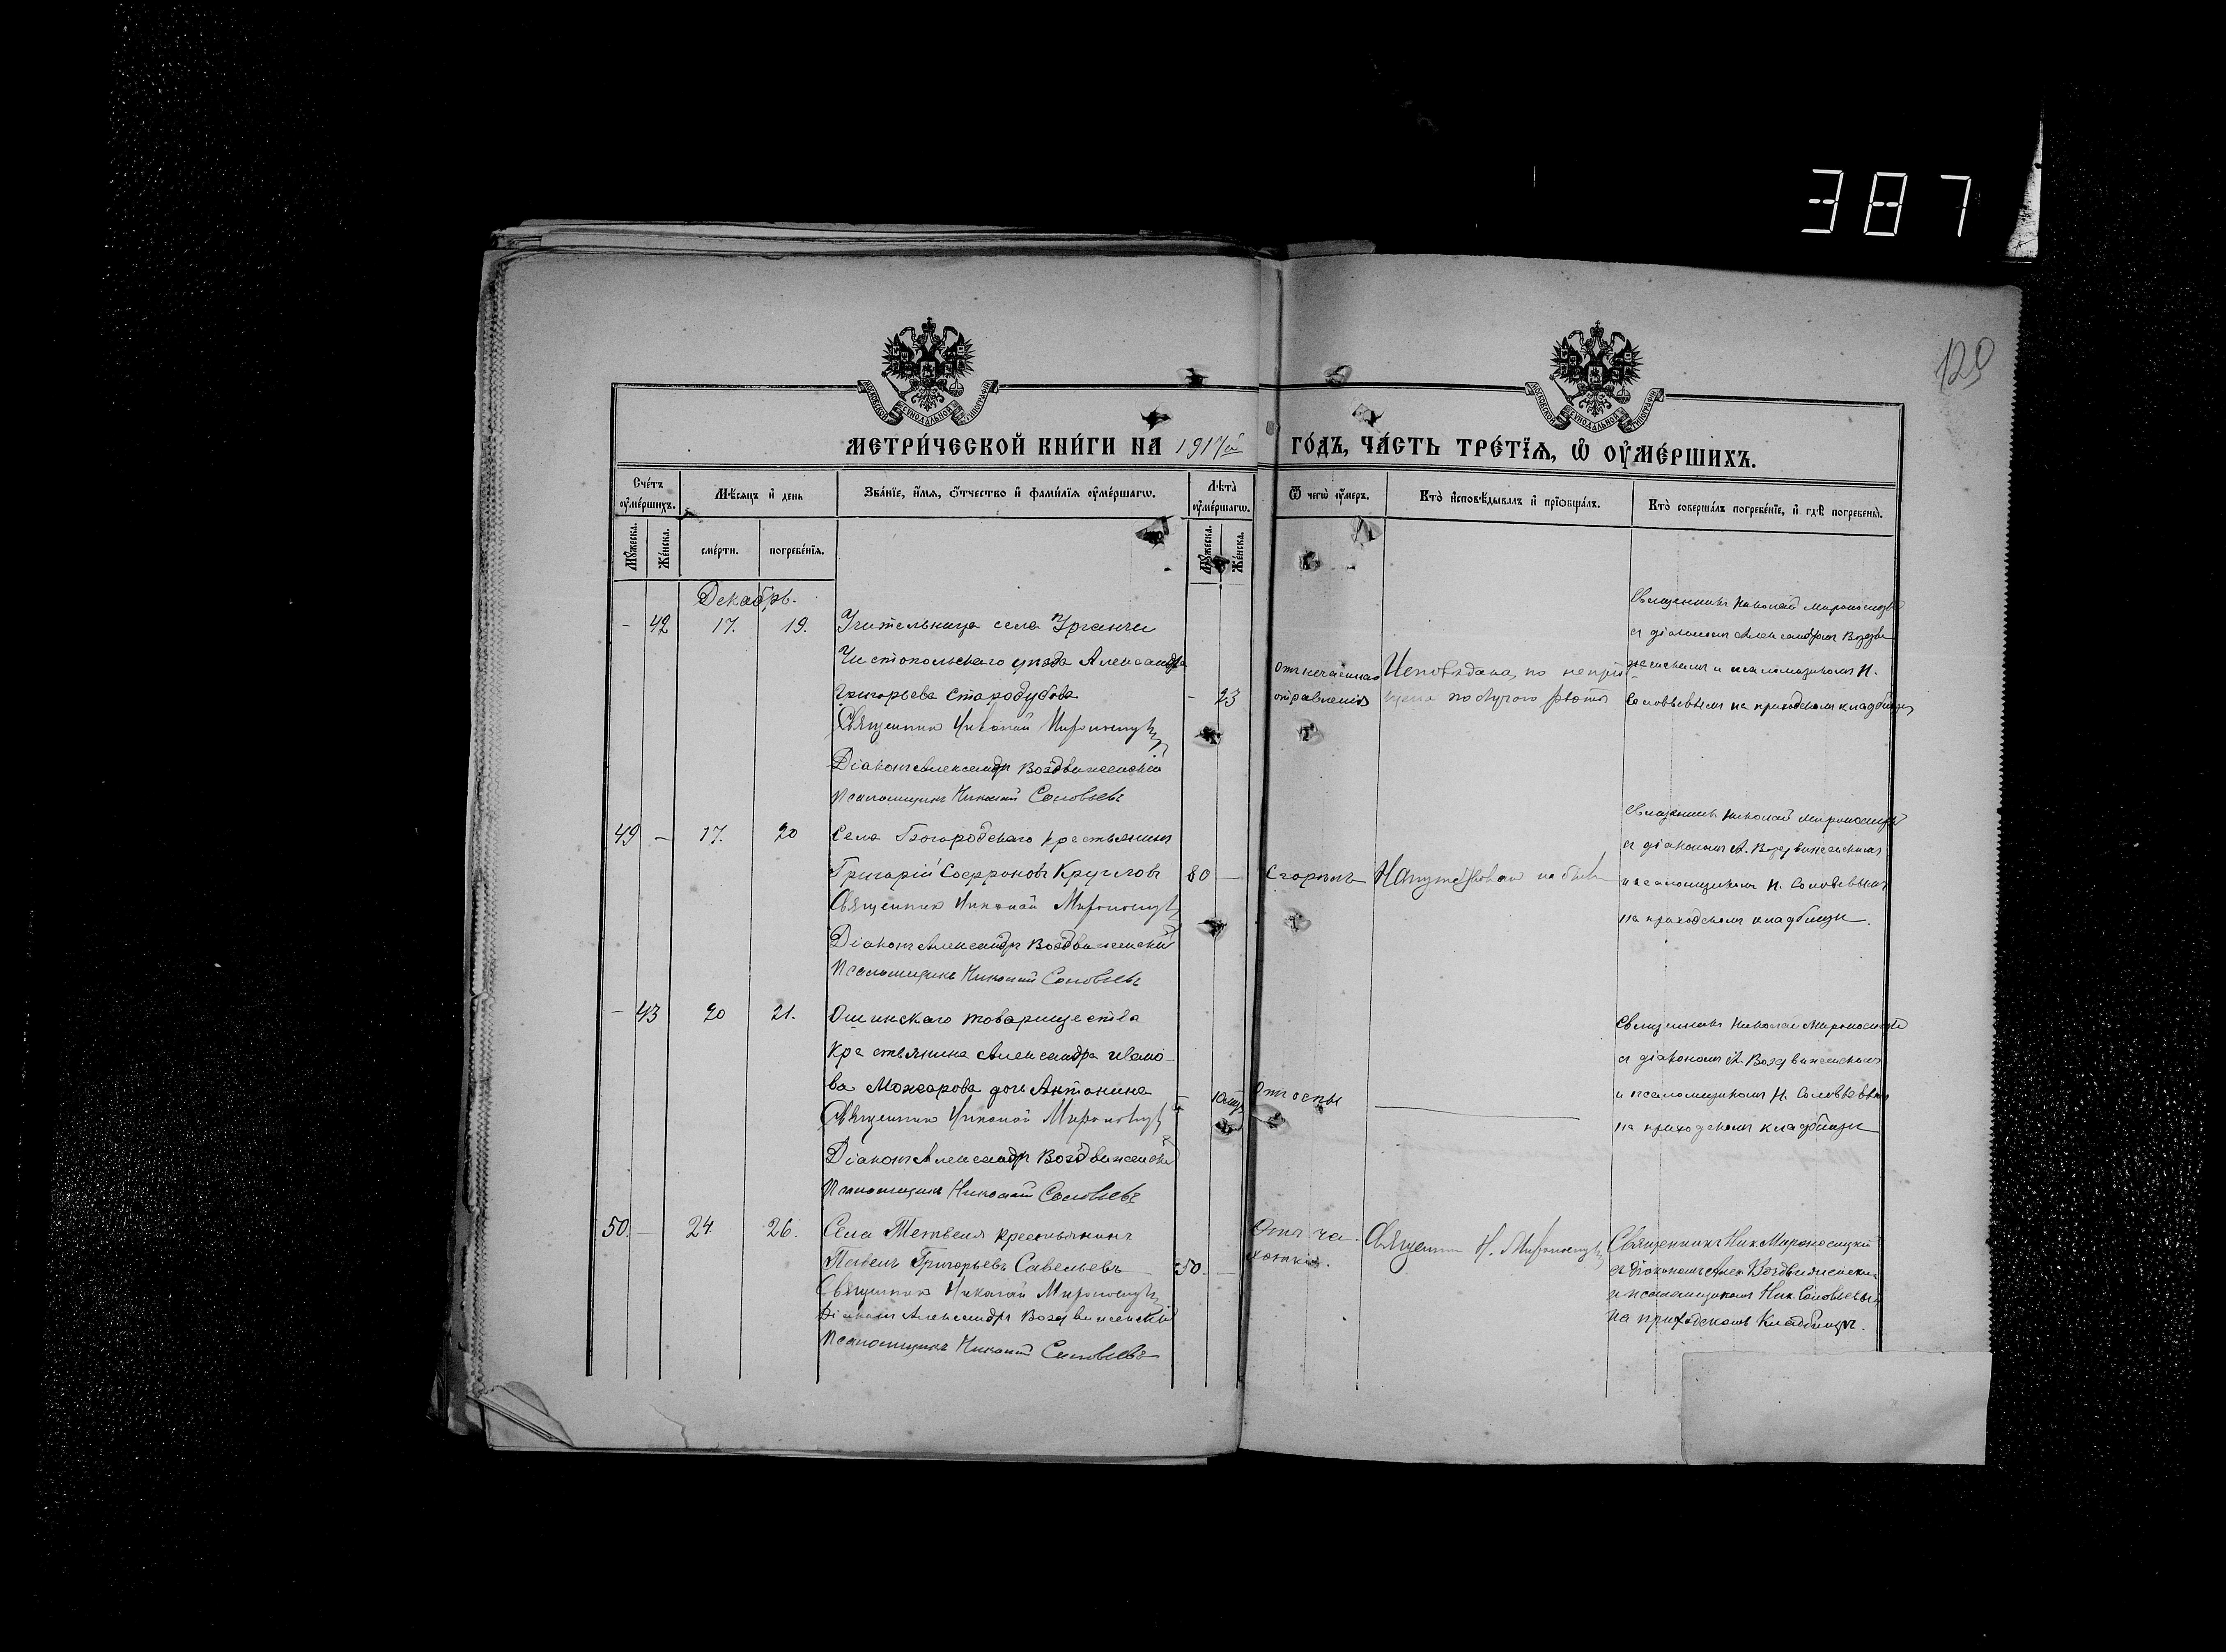 387
129
МОСКОВСКОЙ СѴНОДАЛЬНОЙ ТИПОГРАФІИ
МОСКОВСКОЙ СѴНОДАЛЬНОЙ ТИПОГРАФІИ
МЕТРИ́ЧЕСКОЙ КНИ́ГИ НА 1917й ГО́ДЪ, ЧА́СТЬ ТРЕ́ТІѦ, Ѡ҆ ОУ҆МЕ́РШИХЪ.
Сче́тъ оу҆ме́ршихъ.
Мѣ́сяцъ и҆ день
Зва́нїе, и҆́мя, ѻ҆́тчество и҆ фами́лїя оу҆ме́ршагѡ.
Лѣта̀ оу҆ме́ршагѡ.
Ѿ чегѡ̀ оу҆́меръ.
Кто̀ и҆сповѣ́дывалъ и҆ прїѡбща́лъ.
Кто̀ соверша́лъ погребе́нїе, и҆ гдѣ̀ погребены̀.
Мꙋ́жеска.
Же́нска.
сме́рти.
погребе́нїя.
Мꙋ́жеска.
Же́нска.
Декабрь.
- 42 17. 19. Учительница села
Чистопольскаго уѣзда Александра
Григорьева Стародубова - 23
Священникъ Николай Мироносицкій
Діаконъ Александръ Воздвиженскій
Псаломщикъ Николай Соловьевъ
Отъ нечаяннаго
отравленія
Исповѣдана, но не прі
щена по случаю рвоты
Священникъ Николай Мироносицкій
съ діакономъ Александромъ Воздви
женскимъ и псаломщикомъ Н.
Соловьевымъ на приходскомъ кладбищѣ
49 - 17. 20 Села Богородскаго крестьянинъ
Григорій Софроновъ Кругловъ 80 -
Священникъ Николай Мироносицкій
Діаконъ Александръ Воздвиженскій
Псаломщикъ Николай Соловьевъ
Сгорѣлъ
Напутствованъ не былъ
Священникъ Николай Мироносицкій
съ діакономъ А. Воздвиженскимъ
и псаломщикомъ Н. Соловьевымъ
на приходскомъ кладбищѣ.
- 43 20 21. Ошинскаго товарищества
крестьянина Александра Ивано-
ва Можарова дочь Антонина
Священникъ Николай Мироносицкій
Діаконъ Александръ Воздвиженскій
Псаломщикъ Николай Соловьевъ
Отъ оспы
Священникъ Николай Мироносицкій
съ діакономъ А. Воздвиженскимъ
и псаломщикомъ Н. Соловьевымъ
на приходскомъ кладбищѣ
50. - 24 26. Села крестьянинъ
Павелъ Григорьевъ Савельевъ 50 -
Священникъ Николай Мироносицкій
Діаконъ Александръ Воздвиженскій
Псаломщикъ Николай Соловьевъ
Отъ ча-
хотки.
Священникъ Н. Мироносицкій
Священникъ Ник. Мироносицкій
съ діакономъ Алек. Воздвиженскимъ
и псаломщикомъ Ник. Соловьевымъ
на приходскомъ кладбищѣ.